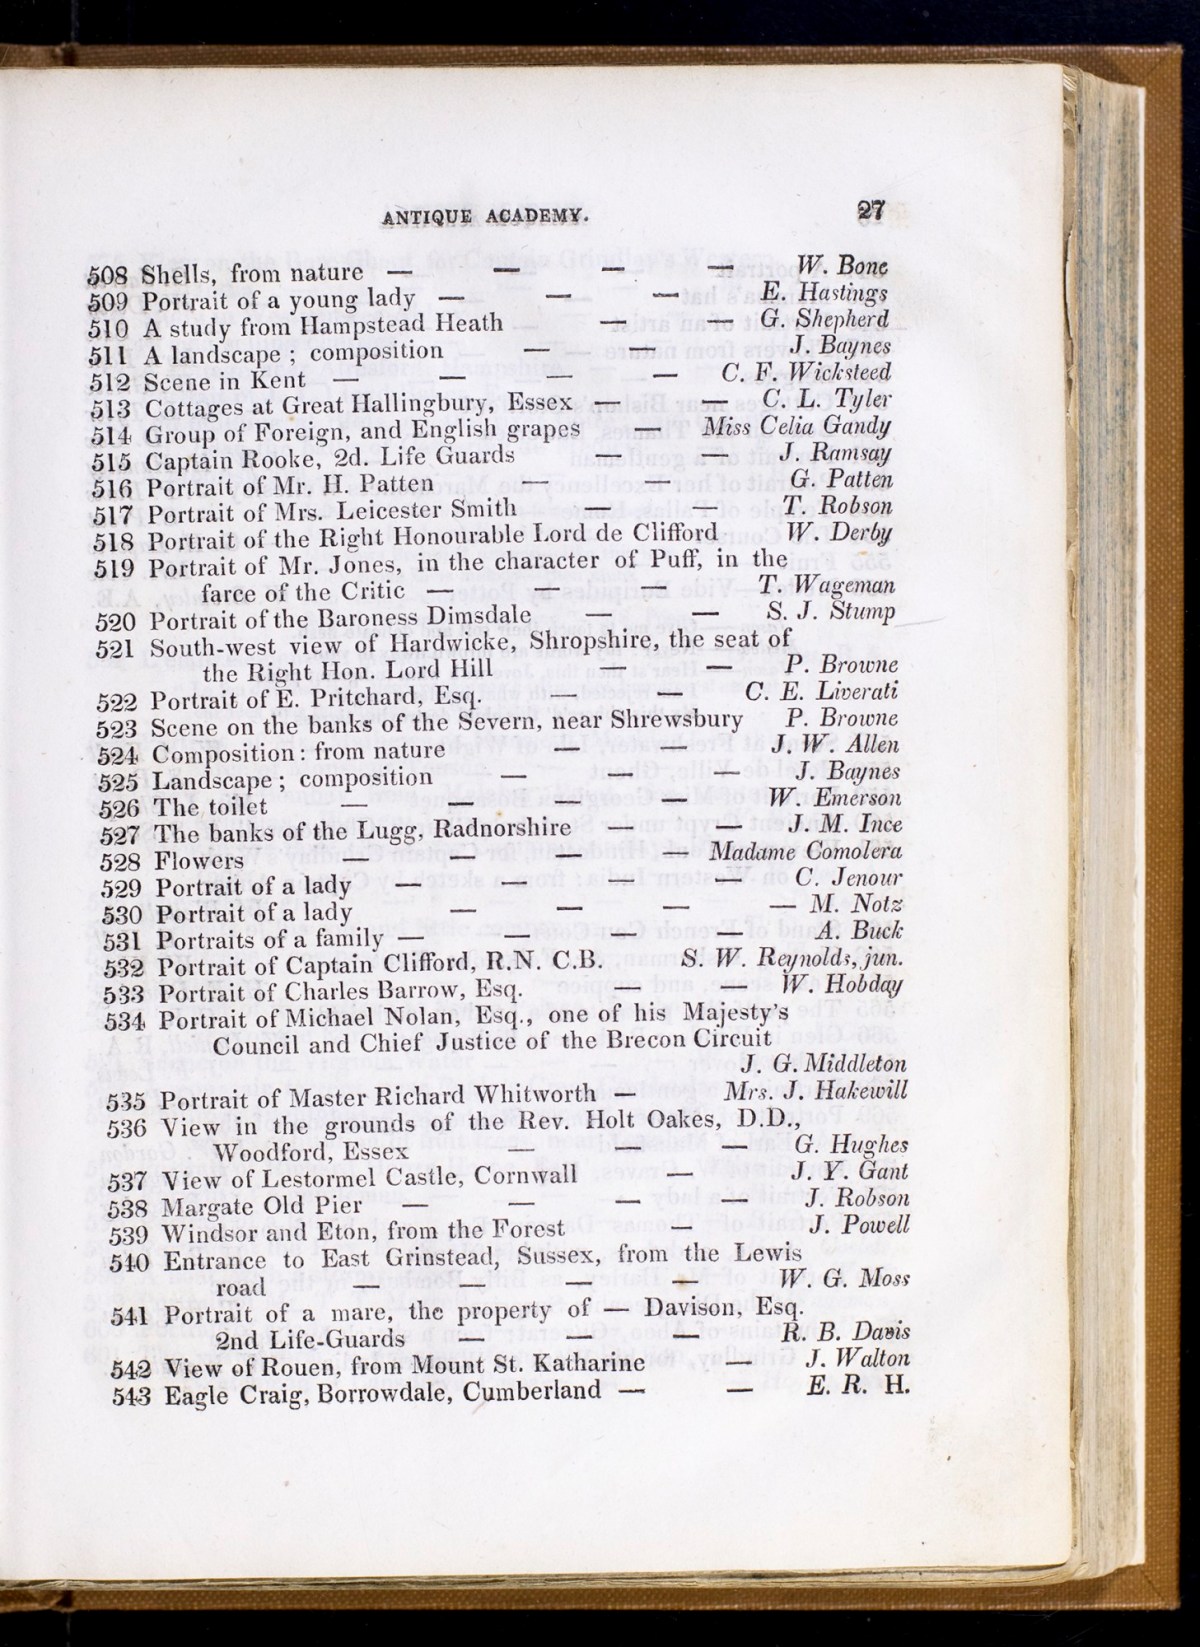 ANTIQUE ACADEMY. 27
508 Shells, from nature — — — — W. Bone
509 Portrait of a young lady — — — E. Hastings
510 A study from Hampstead Heath — — G. Shepherd
511 A landscape ; composition — — J. Baynes
512 Scene in Kent — — — — C. F. Wicksteed
513 Cottages at Great Hallingbury, Essex — — C. L. Tyler
514 Group of Foreign, and English grapes — Miss Celia Gandy
515 Captain Rooke, 2d. Life Guards — — J. Ramsay
516 Portrait of Mr. H. Patten — — G. Patten
517 Portrait of Mrs. Leicester Smith — — T. Robson
518 Portrait of the Right Honourable Lord de Clifford W. Derby
519 Portrait of Mr. Jones, in the character of Puff, in the
farce of the Critic — — — T. Wageman
520 Portrait of the Baroness Dimsdale — — S. J. Stump
521 South-west view of Hardwicke, Shropshire, the seat of
the Right Hon. Lord Hill — — P. Browne
522 Portrait of E. Pritchard, Esq. — — C. E. Liverati
523 Scene on the banks of the Severn, near Shrewsbury P. Browne
524 Composition : from nature — — J. W. Allen
525 Landscape ; composition — — — J. Baynes
526 The toilet — — — — W. Emerson
527 The banks of the Lugg, Radnorshire — — J. M. Ince
528 Flowers — — — — Madame Comolera
529 Portrait of a lady — — — — C. Jenour
530 Portrait of a lady — — — — M. Notz
531 Portraits of a family — — — — A. Buck
532 Portrait of Captain Clifford, R.N. C.B. S. W. Reynolds, jun.
533 Portrait of Charles Barrow, Esq. — — W. Hobday
534 Portrait of Michael Nolan, Esq., one of his Majesty's
Council and Chief Justice of the Brecon Circuit
J. G. Middleton
535 Portrait of Master Richard Whitworth — Mrs. J. Hakewill
536 View in the grounds of the Rev. Holt Oakes, D.D.,
Woodford, Essex — — — G. Hughes
537 View of Lestormel Castle, Cornwall — J. Y. Gant
538 Margate Old Pier — — — — J. Robson
539 Windsor and Eton, from the Forest — J. Powell
540 Entrance to East Grinstead, Sussex, from the Lewis
road — — — — W. G. Moss
541 Portrait of a mare, the property of — Davison, Esq.
2nd Life-Guards — — — R. B. Davis
542 View of Rouen, from Mount St. Katharine — J. Walton
543 Eagle Craig, Borrowdale, Cumberland — — E. R. H.